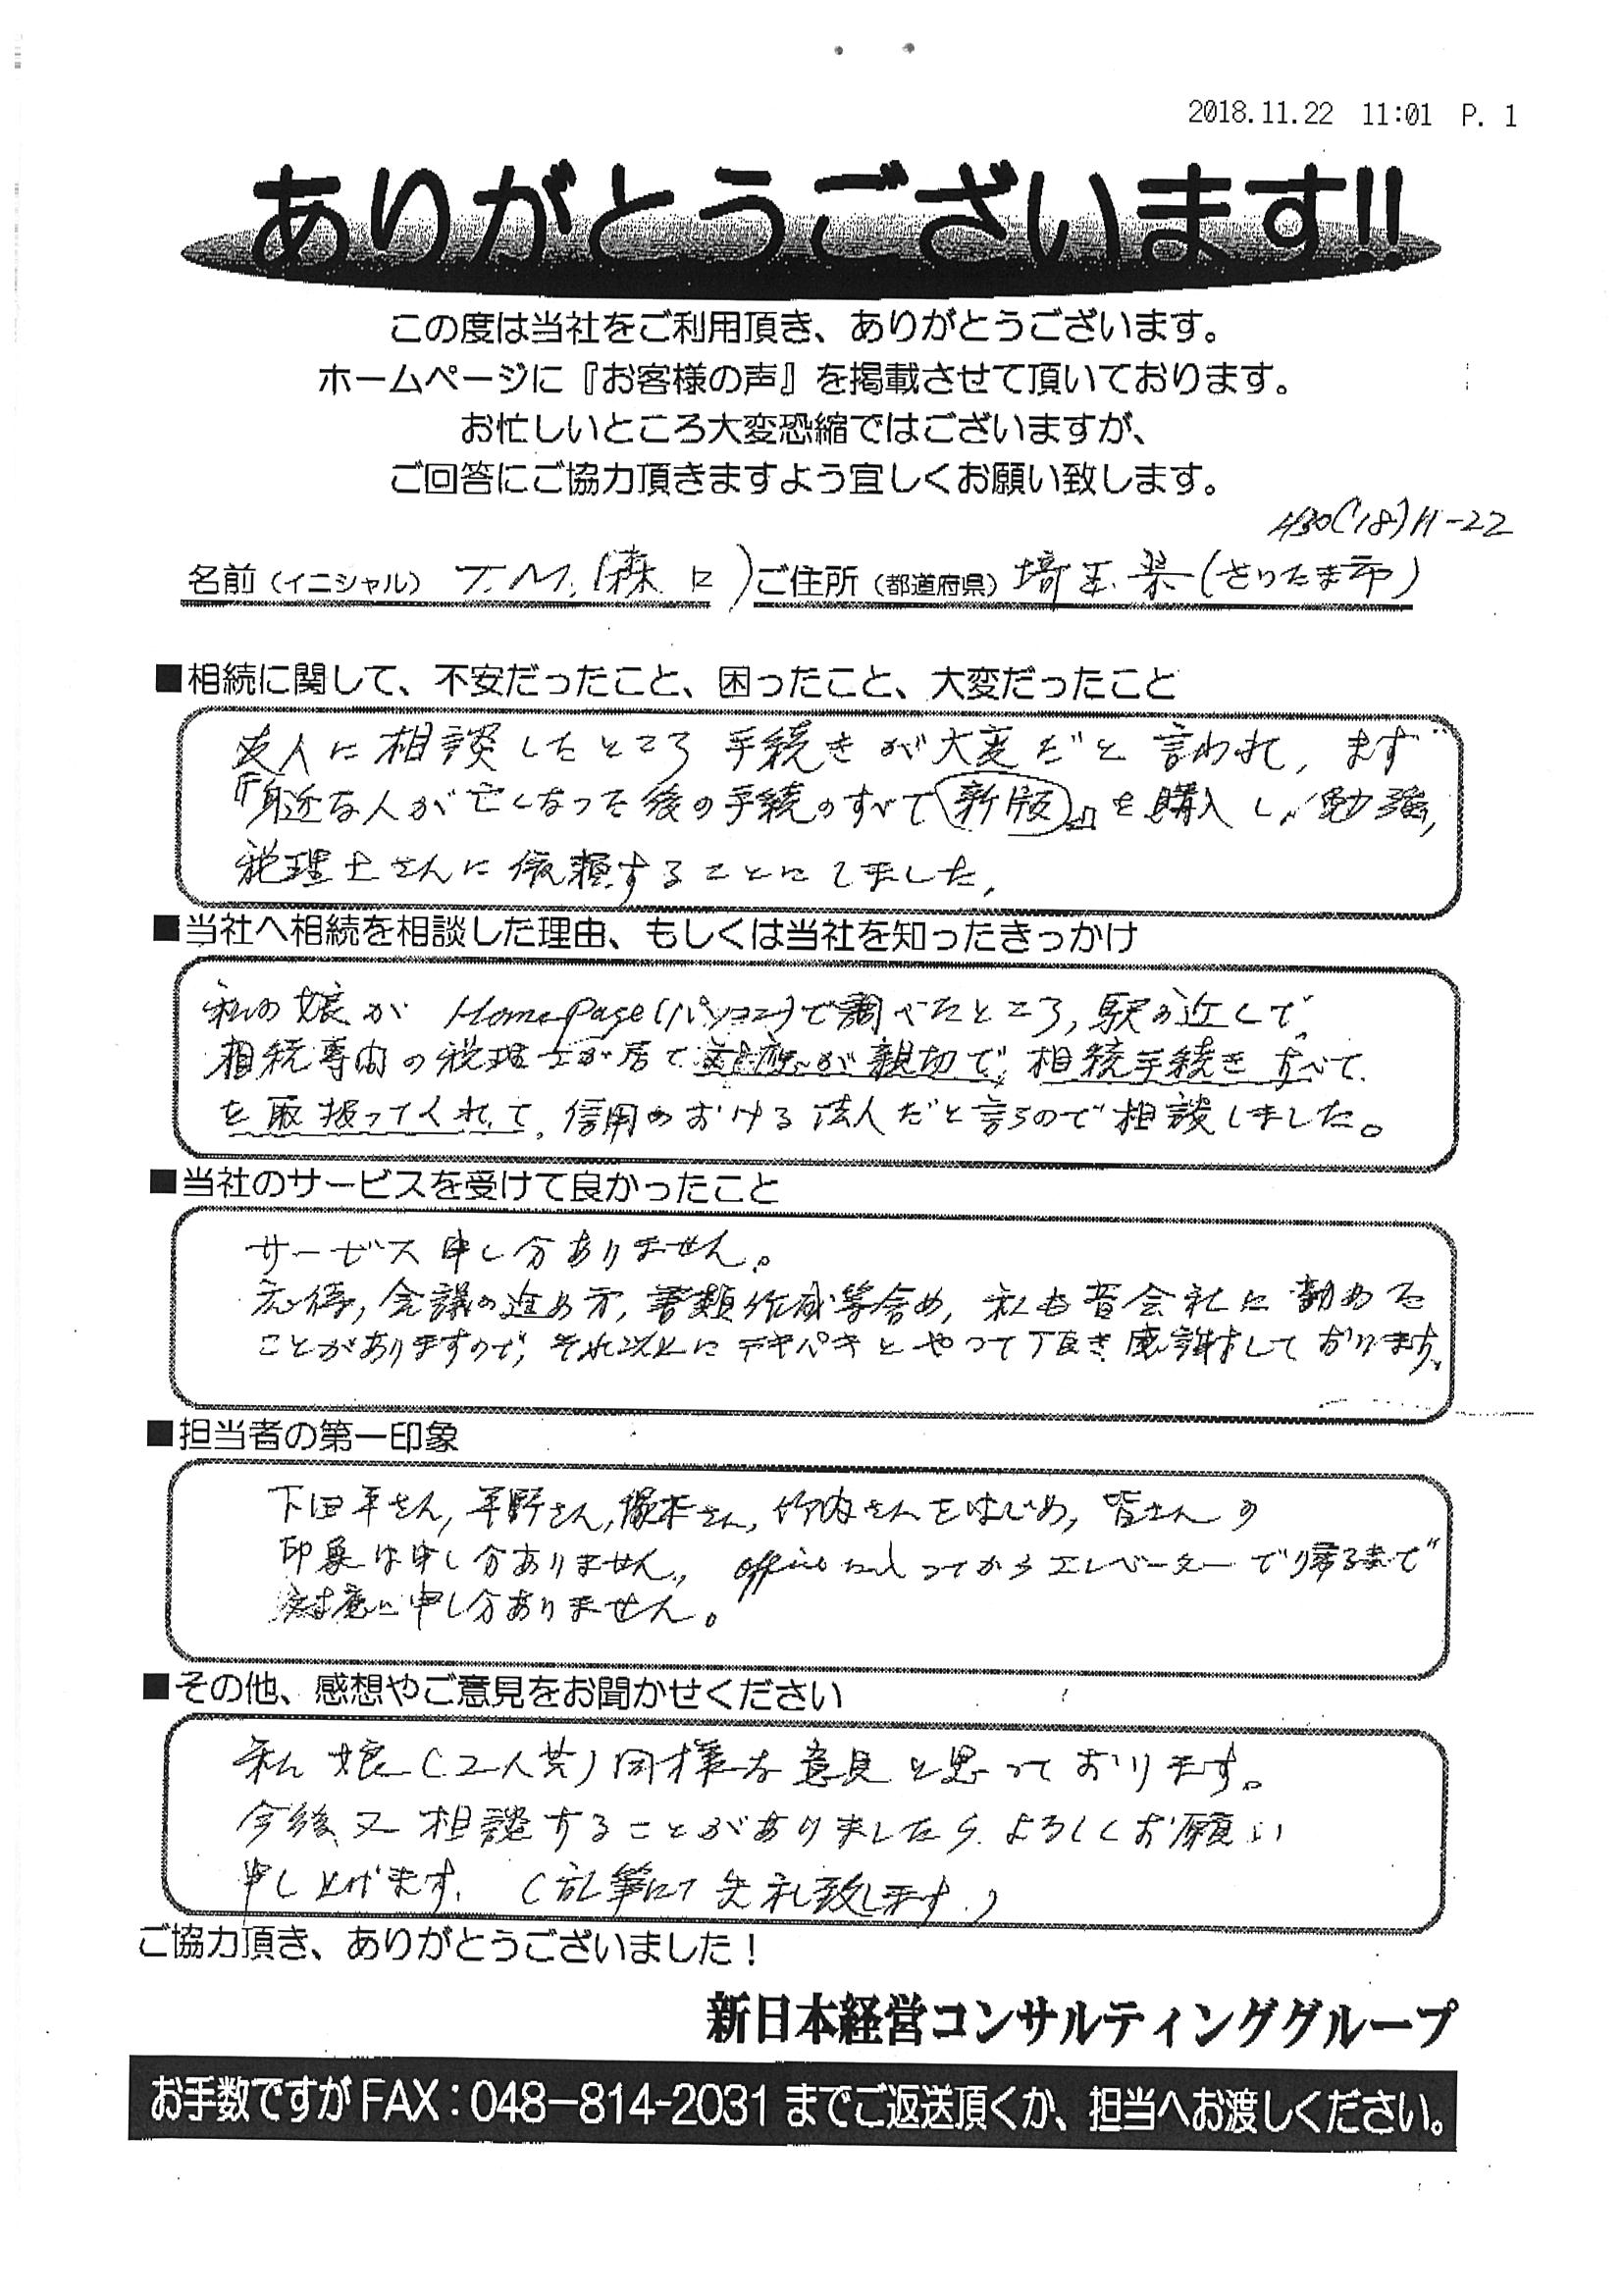 2018.11.22 11:01 P. 1
ありがとうございます!!
この度は当社をご利用頂き、ありがとうございます。
ホームページに『お客様の声』を掲載させて頂いております。
お忙しいところ大変恐縮ではございますが、
ご回答にご協力頂きますよう宜しくお願い致します。
H30('18)11-22
名前（イニシャル） T.M.(森口)ご住所（都道府県）埼玉県(さいたま市)
■相続に関して、不安だったこと、困ったこと、大変だったこと
友人に相談したところ手続きが大変だと言われ, まず
『身近な人が亡くなった後の手続のすべて 新版』を購入し, 勉強,
税理士さんに依頼することにしました,
■当社へ相続を相談した理由、もしくは当社を知ったきっかけ
私の娘が HomePage(パソコン)で調べたところ, 駅の近くで,
相続専門の税理士が居て が親切で, 相続手続きすべて
を取扱ってくれて, 信用のおける法人だと言うので相談しました。
■当社のサービスを受けて良かったこと
サービス申し分ありません。
応待, 会議の進め方, 書類作成等含め, 私も昔会社に勤めた
ことがありますので, それ以上にテキパキとやって頂き感謝しております。
■担当者の第一印象
下田平さん, 平野さん, 塚本さん, 竹内さんをはじめ, 皆さんの
印象は申し分ありません, officeに入ってからエレベーターで帰るまで
申し分ありません。
■その他、感想やご意見をお聞かせください
私 娘(2人共)同様な意見と思っております。
今後又相談することがありましたら よろしくお願い
申し上げます, (乱筆にて失礼致します.)
ご協力頂き、ありがとうございました！
新日本経営コンサルティンググループ
お手数ですがFAX：048−814-2031までご返送頂くか、担当へお渡しください。